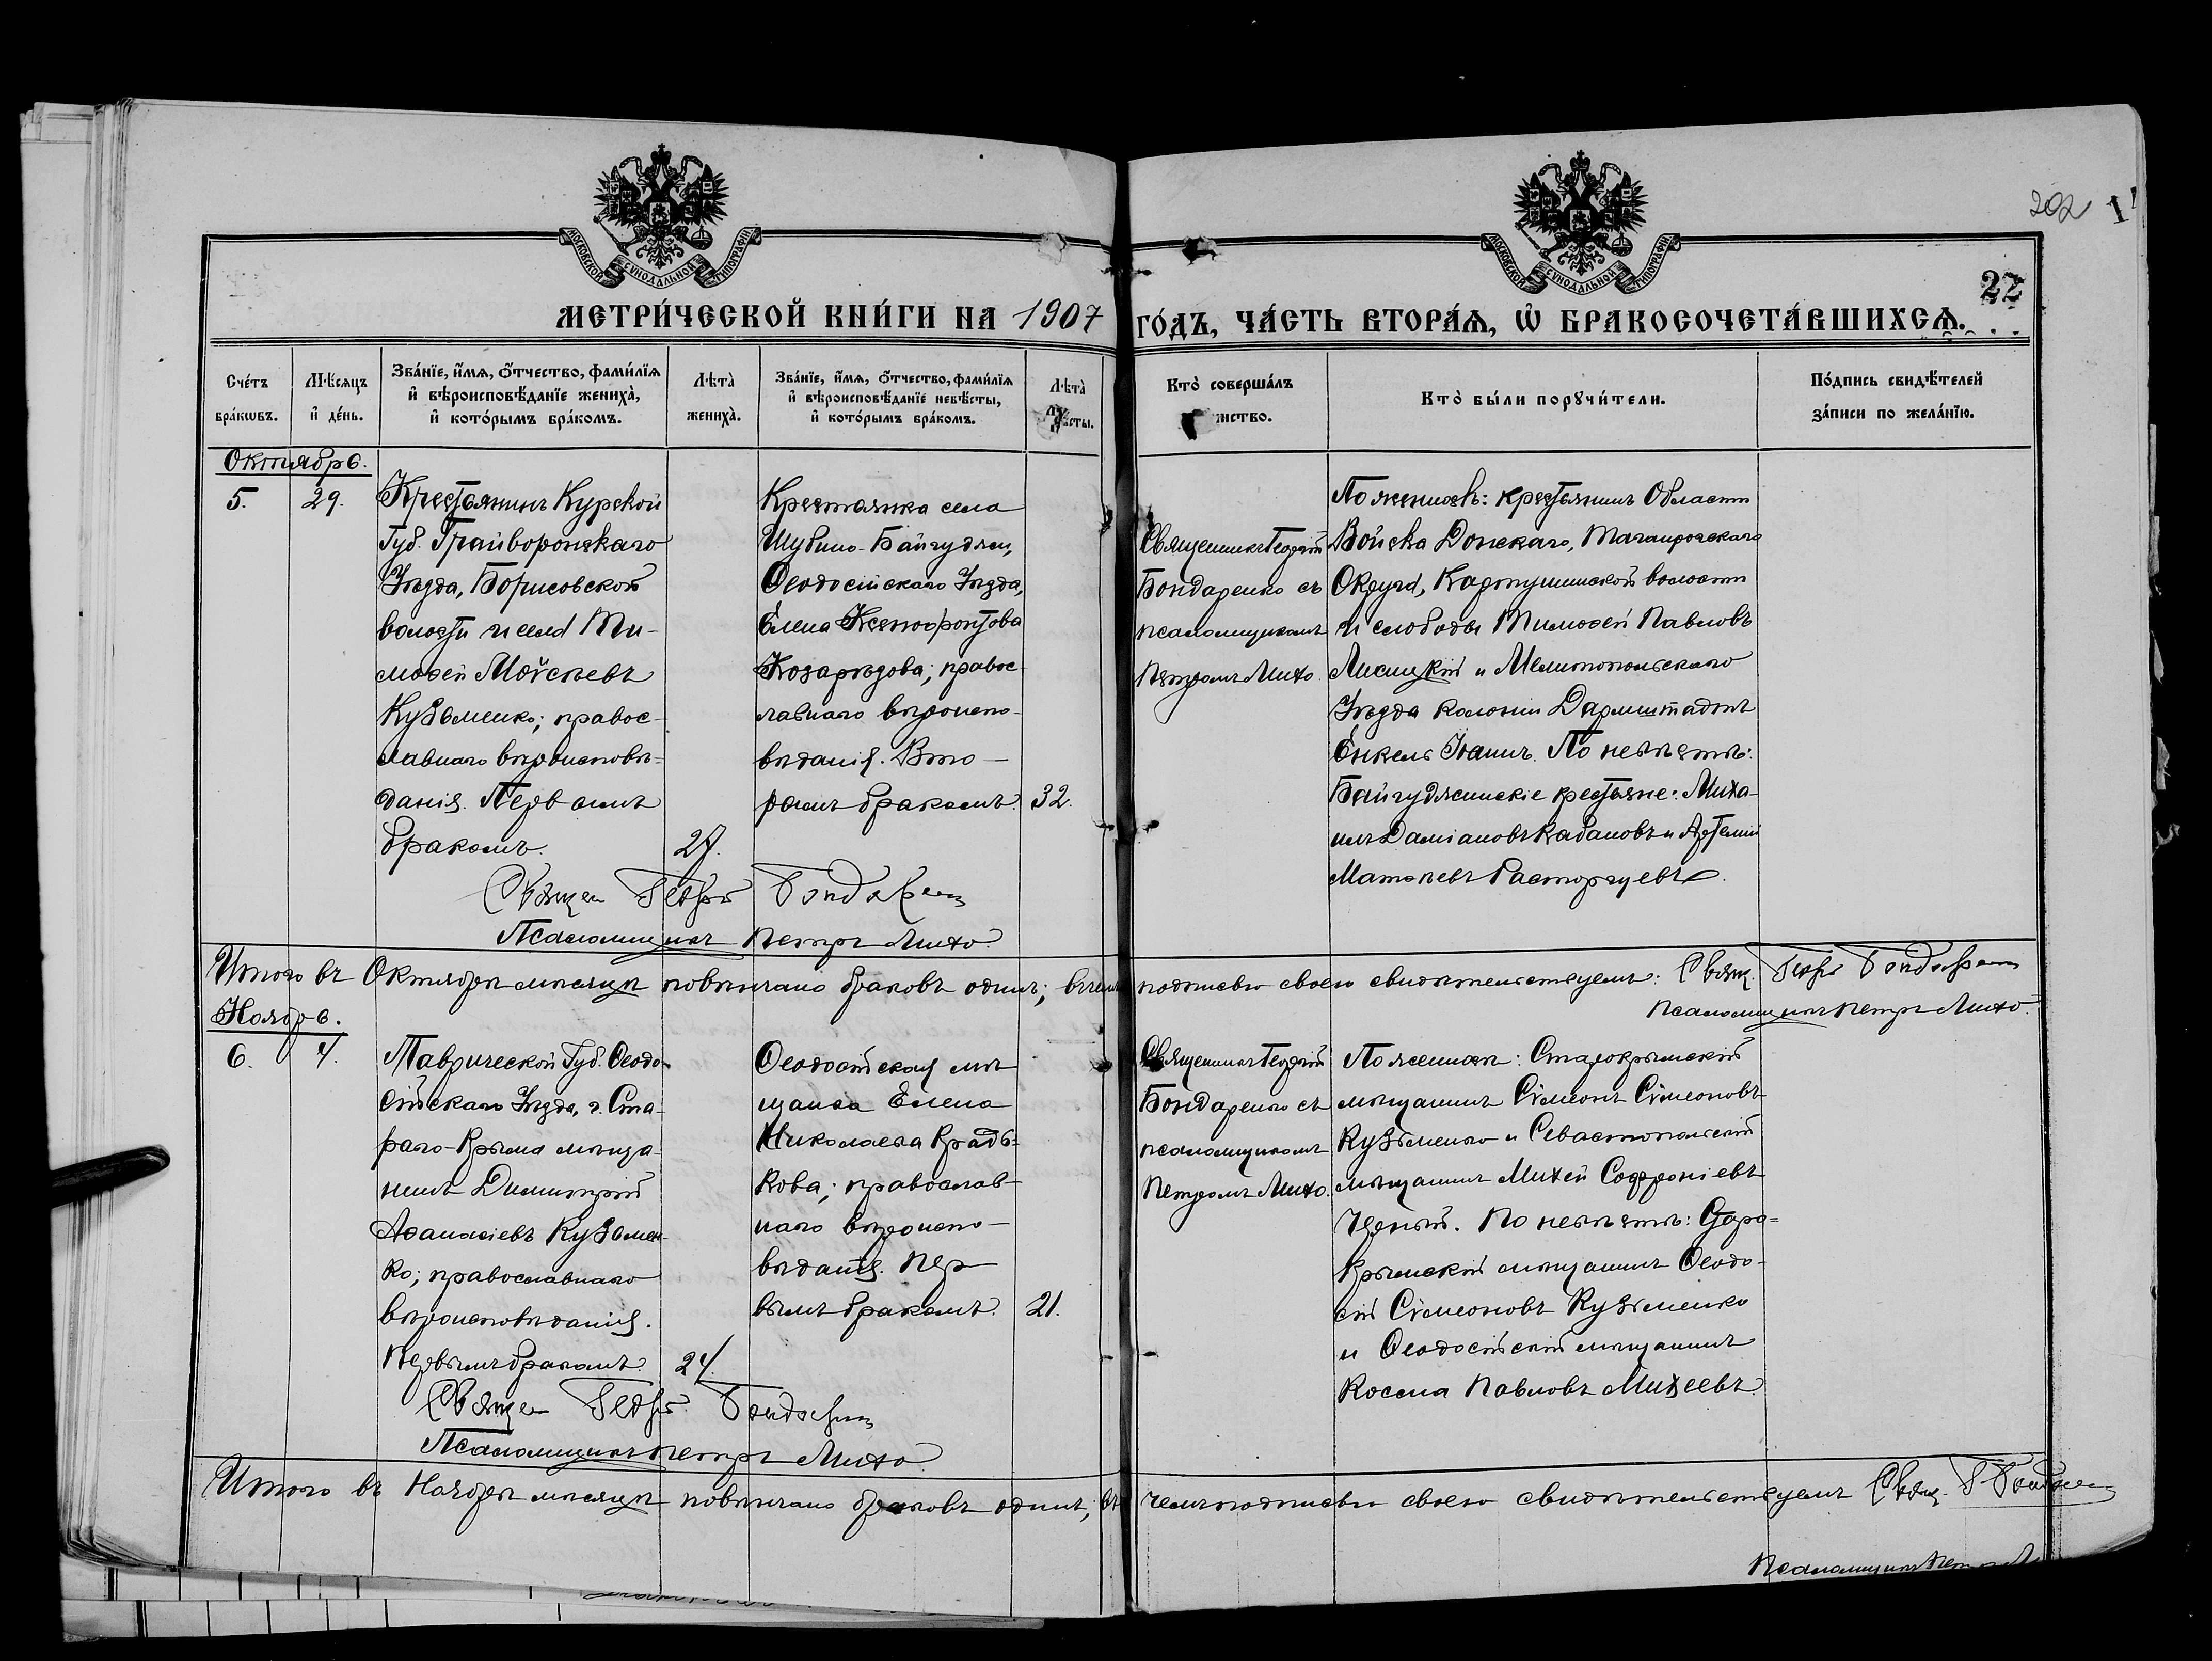 202
22
МОСКОВСКОЙ СѴНОДАЛЬНОЙ ТИПОГРАФІИ
МОСКОВСКОЙ СѴНОДАЛЬНОЙ ТИПОГРАФІИ
МЕТРИ́ЧЕСКОЙ КНИ́ГИ НА 1907 ГО́ДЪ, ЧА́СТЬ ВТОРА́Ѧ, Ѽ БРАКОСОЧЕТА́ВШИХСѦ.
Сче́тъ бра́кѡвъ.
Мѣ́сяцъ и҆ де́нь.
Зва́нїе, и҆́мѧ, ѻ҆́тчество, фами́лїѧ и҆ вѣроисповѣ́данїе жениха̀, и҆ кото́рымъ бра́комъ.
Лѣта̀ жениха̀.
Зва́нїе, и҆́мѧ, ѻ҆́тчество, фами́лїѧ и҆ вѣроисповѣ́данїе невѣ́сты, и҆ кото́рымъ бра́комъ.
Лѣта̀
Кто̀ соверша́лъ
Кто̀ бы́ли порꙋчи́тели.
По́дпись свидѣ́телей за́писи по жела́нїю.
Октябрь.
5.
29.
Крестьянинъ Курской
Губ. Грайворонскаго
Уѣзда, Борисовской
волости и села Ти-
моѳей Моѵсѣевъ
Кузьменко; правос-
лавнаго вѣроисповѣ-
данія. Первымъ
бракомъ.
27.
Крестьянка села
Шубино-Байгуджи,
Ѳеодосійскаго Уѣзда,
Елена Ксенофонтова
Козарѣзова; правос-
лавнаго вѣроиспо-
вѣданія. Вто-
рымъ бракомъ.
32.
Священникъ Георгій
Бондаренко съ
псаломщикомъ
Петромъ Михо.
По женихѣ: крестьянинъ Области
Войска Донскаго, Таганрогскаго
Округа, Картушинской волости
и слободы Тимоѳей Павловъ
Лисицкій и Мелитопольскаго
Уѣзда колоніи Дармштадтъ
Енкель Іоаннъ. По невѣстѣ:
Байгуджинскіе крестьяне: Миха-
илъ Даміановъ Кабановъ и Артемій
Матѳѣевъ Расторгуевъ.
Священ Георгій Бондаренко
Псаломщикъ Петръ Михо
Итого въ Октябрѣ мѣсяцѣ повѣнчано браковъ одинъ; въ чемъ подписью своею свидѣтельствуемъ: Свящ. Георгій Бондаренко
Псаломщикъ Петръ Михо.
Ноябрь.
6.
4.
Таврической Губ. Ѳеодо-
сійскаго Уѣзда, г. Ста-
раго-Крыма мѣща-
нинъ Димитрій
Аѳанасіевъ Кузьмен-
ко; православнаго
вѣроисповѣданія.
Первымъ бракомъ.
24.
Ѳеодосійская мѣ
щанка Елена
Николаева Крадь-
кова; православ-
наго вѣроиспо-
вѣданія. Пер
вымъ бракомъ.
21.
Священникъ Георгій
Бондаренко съ
псаломщикомъ
Петромъ Михо.
По женихѣ: Старокрымскій
мѣщанинъ Сѵмеонъ Сѵмеоновъ
Кузьменко и Севастопольскій
мѣщанинъ Михей Софроніевъ
Черный. По невѣстѣ: Старо-
Крымскій мѣщанинъ Ѳеодо-
сій Сѵмеоновъ Кузьменко
и Ѳеодосійскій мѣщанинъ
Косма Павловъ Михеевъ.
Священ Георгій Бондаренко
Псаломщикъ Петръ Михо
Итого въ Ноябрѣ мѣсяцѣ повѣнчано браковъ одинъ, въ чемъ подписью своею свидѣтельствуемъ Свящ. Г Бондарен
Псаломщикъ